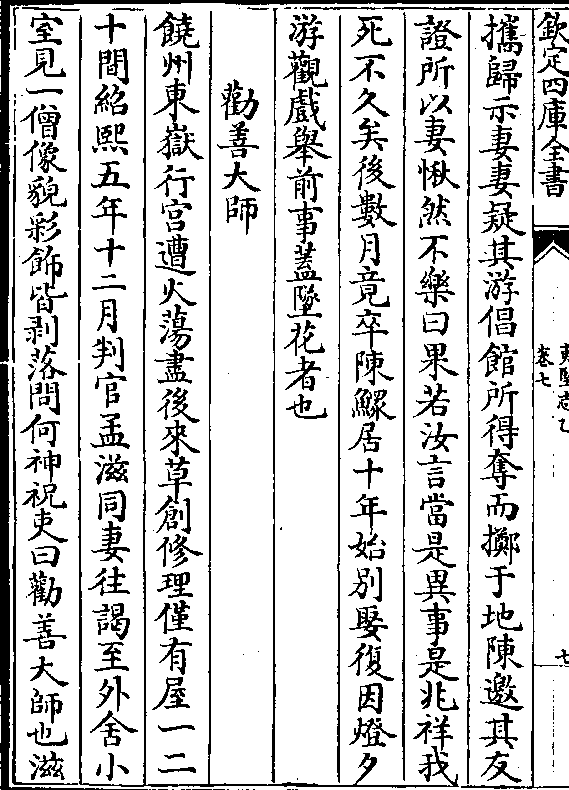 欽定四庫全書
夷堅志乙
卷七
七
攜歸示妻妻疑其游倡館所得奪而擲于地陳邀其友
證所以妻愀然不樂曰果若汝言當是異事是兆祥我
死不久矣後數月竟卒陳鰥居十年始別娶復因燈夕
游觀戲舉前事蓋墜花者也
勸善大師
饒州東嶽行宮遭火蕩盡後來草創修理僅有屋一二
十間紹熙五年十二月判官孟滋同妻往謁至外舍小
室見一僧像貌彩飾皆剥落問何神祝吏曰勸善大師也滋